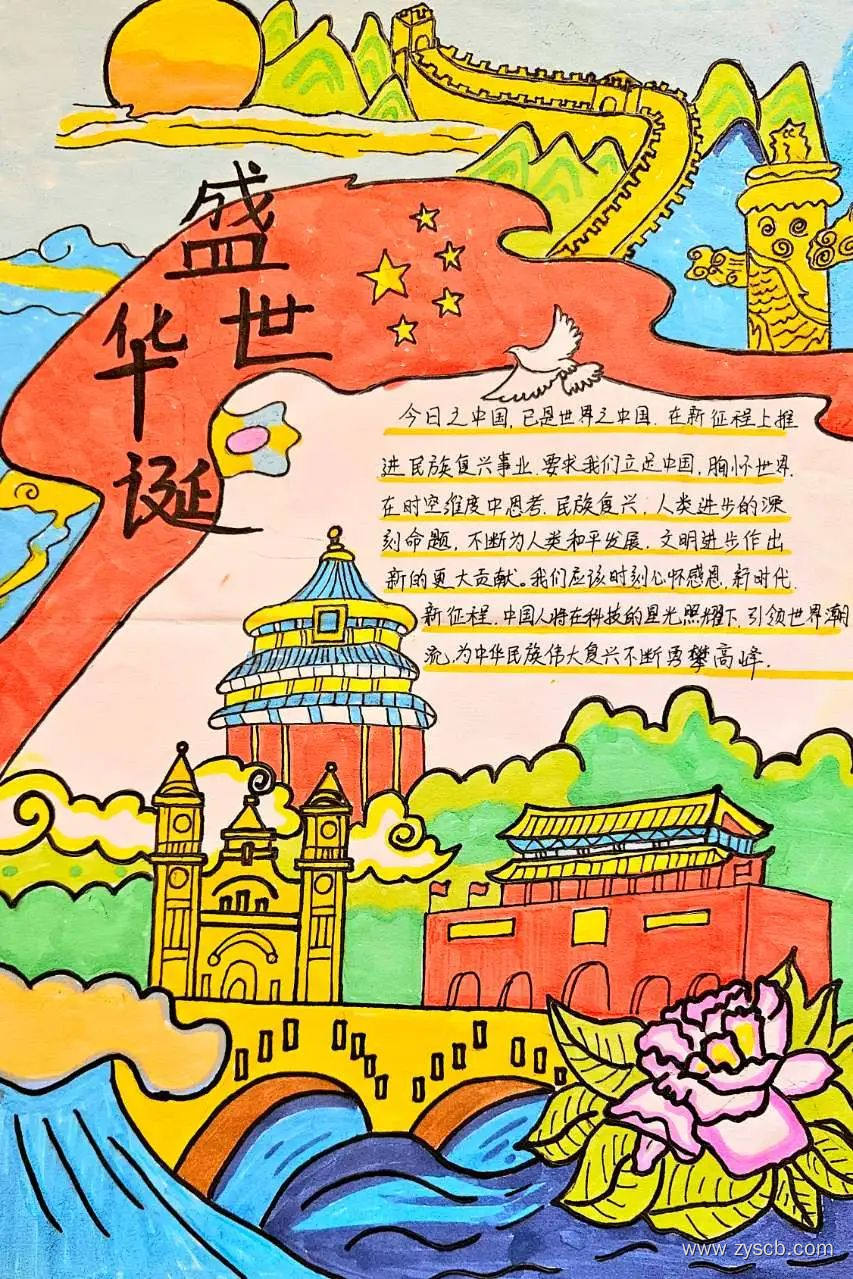 盛世
华诞
今日之中国,已是世界之中国.在新征程上推
进民族复兴事业.要求我们立足中国,胸怀世界.
在时空维度中思考.民族复兴,人类进步的深
刻命题,不断为人类和平发展.文明进步作出
新的更大贡献。我们应该时刻心怀感恩,新时代.
新征程.中国人将在科技的星光照耀下.引领世界潮
流.为中华民族伟大复兴不断勇攀高峰.
www.zyscb.com